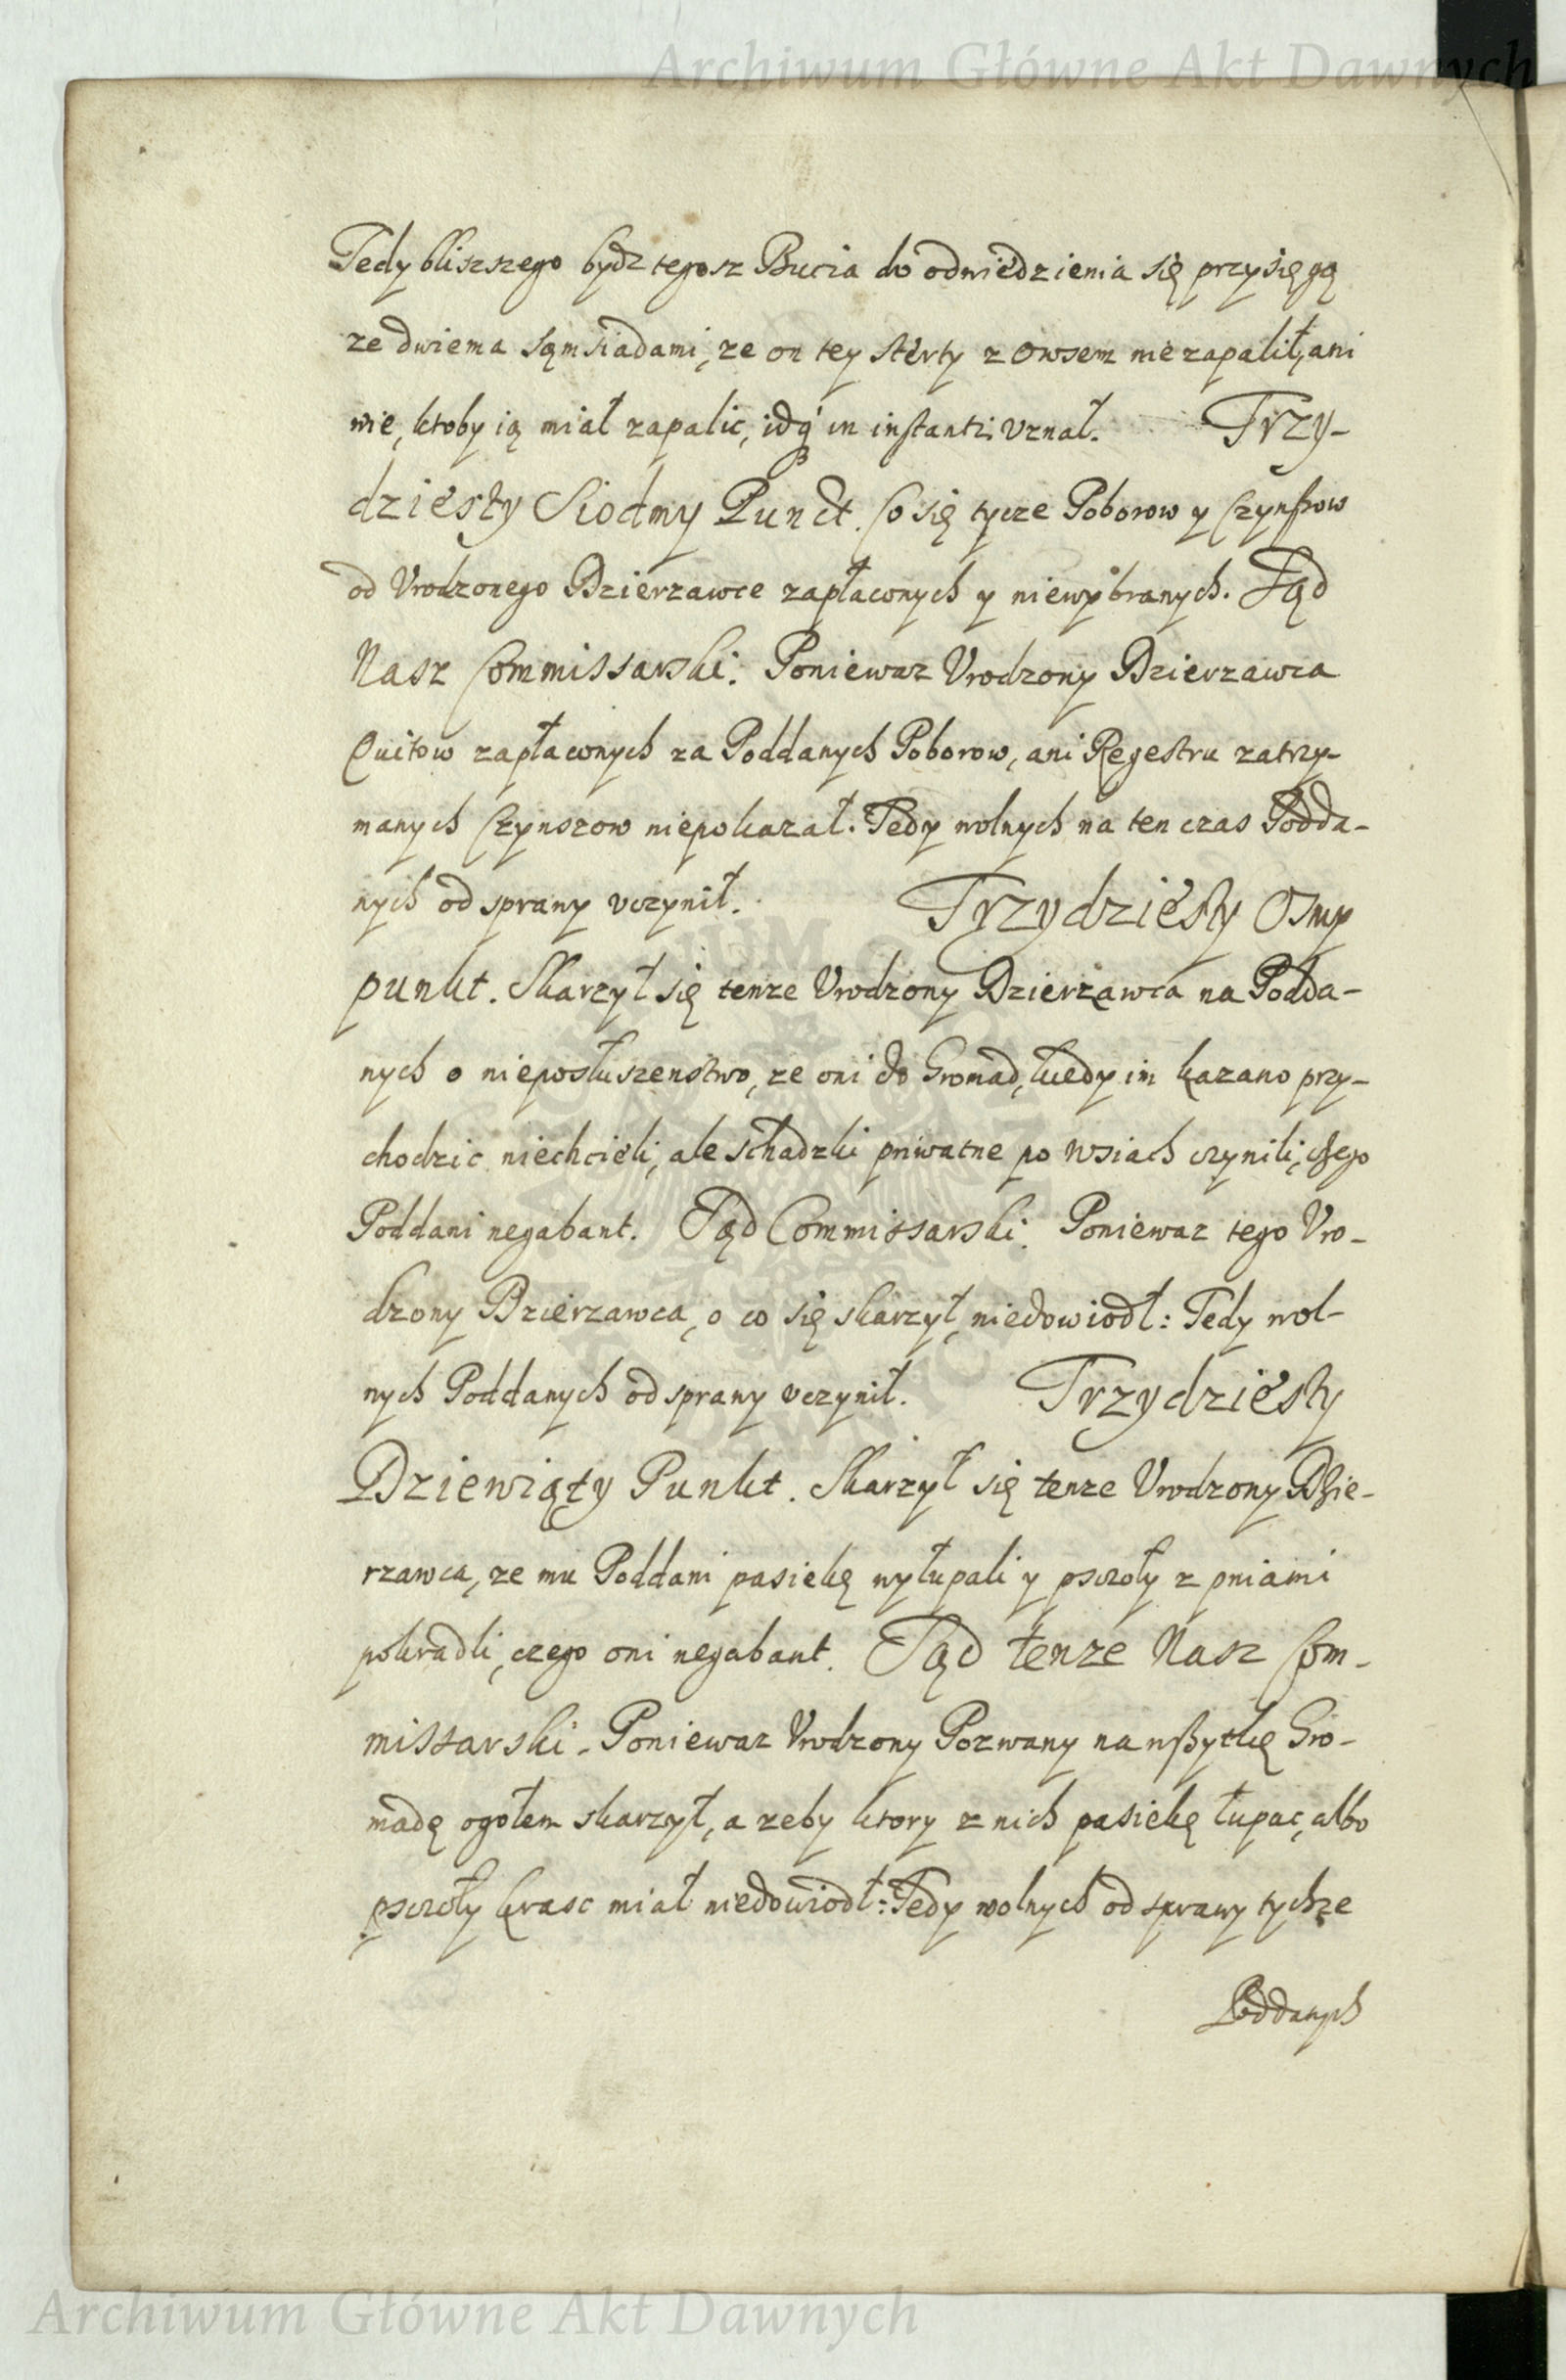 Archiwum Główne Akt Dawnych
Tedy bliszszego bydz tegosz Bucia do odwiedzienia się przysięgą
ze dwiema sąmsiadami, ze on tey sterty z owsem nie zapalił, ani
wie, ktoby ią miał zapalic, idq́ in instanti vznał. Trzy-
dziesty Siodmy Punct. Co się tycze Poborow y Czynßow
od Vrodzonego Dzierzawce zapłaconych y niewybranych. Sąd
Nasz Commissarski. Poniewaz Vrodzony Dzierzawca
Quitow zapłaconych za Poddanych Poborow, ani Regestru zatrzy-
manych Czynszow niepokazał. Tedy wolnych na ten czas Podda-
nych od sprawy vczynił. Trzydziesty Osmy
punkt. Skarzył się tenze Vrodzony Dzierzawca na Podda-
nych o nieposłuszenstwo, ze oni do Gromad, kiedy im kazano przy-
chodzic niechcieli, ale schadzki priwatne po wsiach czynili, czego
Poddani negabant. Sąd Commissarski. Poniewaz tego Vro-
dzony Dzierzawca, o co się skarzył, niedowiodł: Tedy wol-
nych Poddanych od sprawy vczynił. Trzydziesty
Dziewiąty Punkt. Skarzył się tenze Vrodzony Dzie-
rzawca, ze mu Poddani pasiekę wyłupali y psczoły z pniami
pokradli, czego oni negabant. Sąd tenze Nasz Com-
missarski. Poniewaz Vrodzony Pozwany na wßytkę Gro-
madę ogołem skarzył, a zeby ktory z nich pasiekę łupac, albo
psczoły krasc miał niedowiodł: Tedy wolnych od sprawy tychze
Poddanych
Archiwum Główne Akt Dawnych